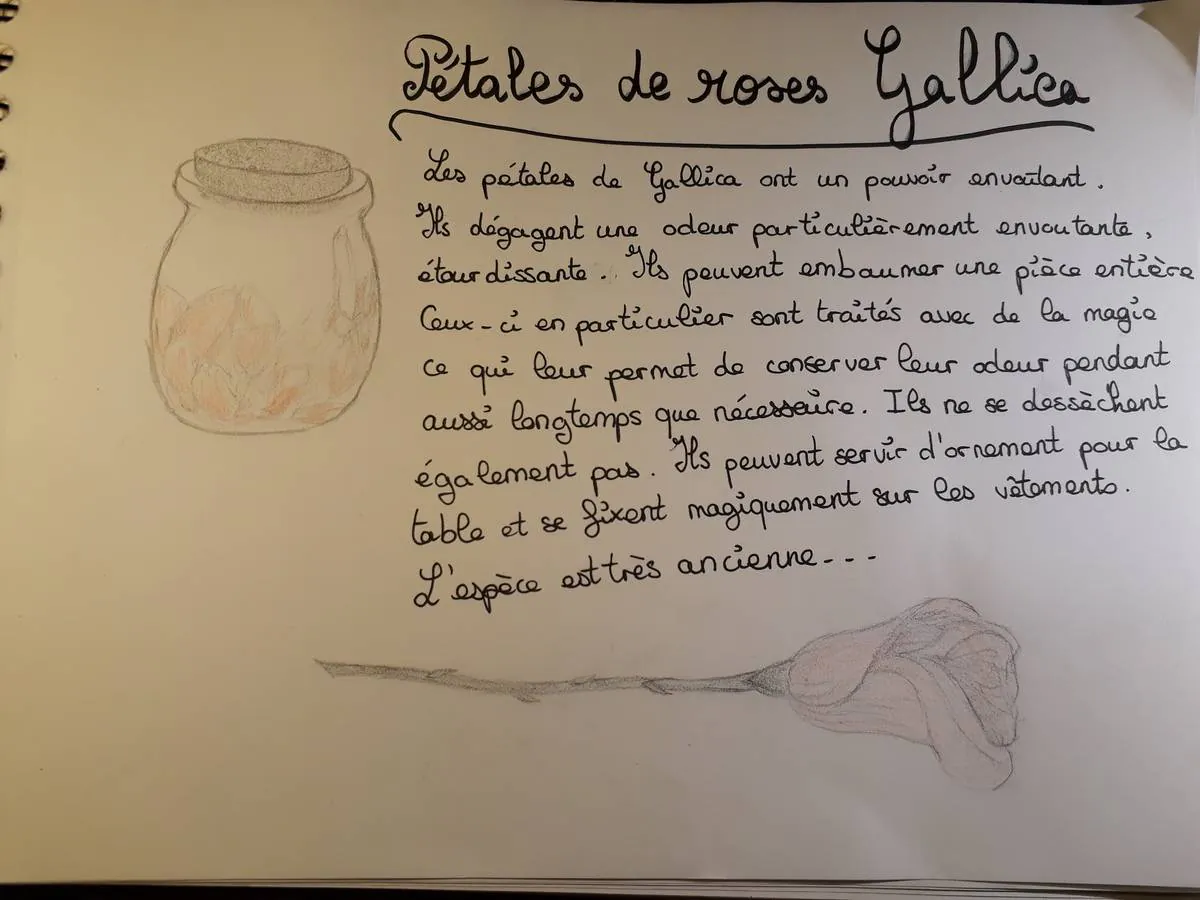 Pétales de roses Gallica
Les pétales de Gallica ont un pouvoir envoûtant.
Ils dégagent une odeur particulièrement envoutante,
étourdissante. Ils peuvent embaumer une pièce entière
Ceux-ci en particulier sont traités avec de la magie
ce qui leur permet de conserver leur odeur pendant
aussi longtemps que nécessaire. Ils ne se dessèchent
également pas. Ils peuvent servir d'ornement pour la
table et se fixent magiquement sur les vêtements.
L'espèce est très ancienne---